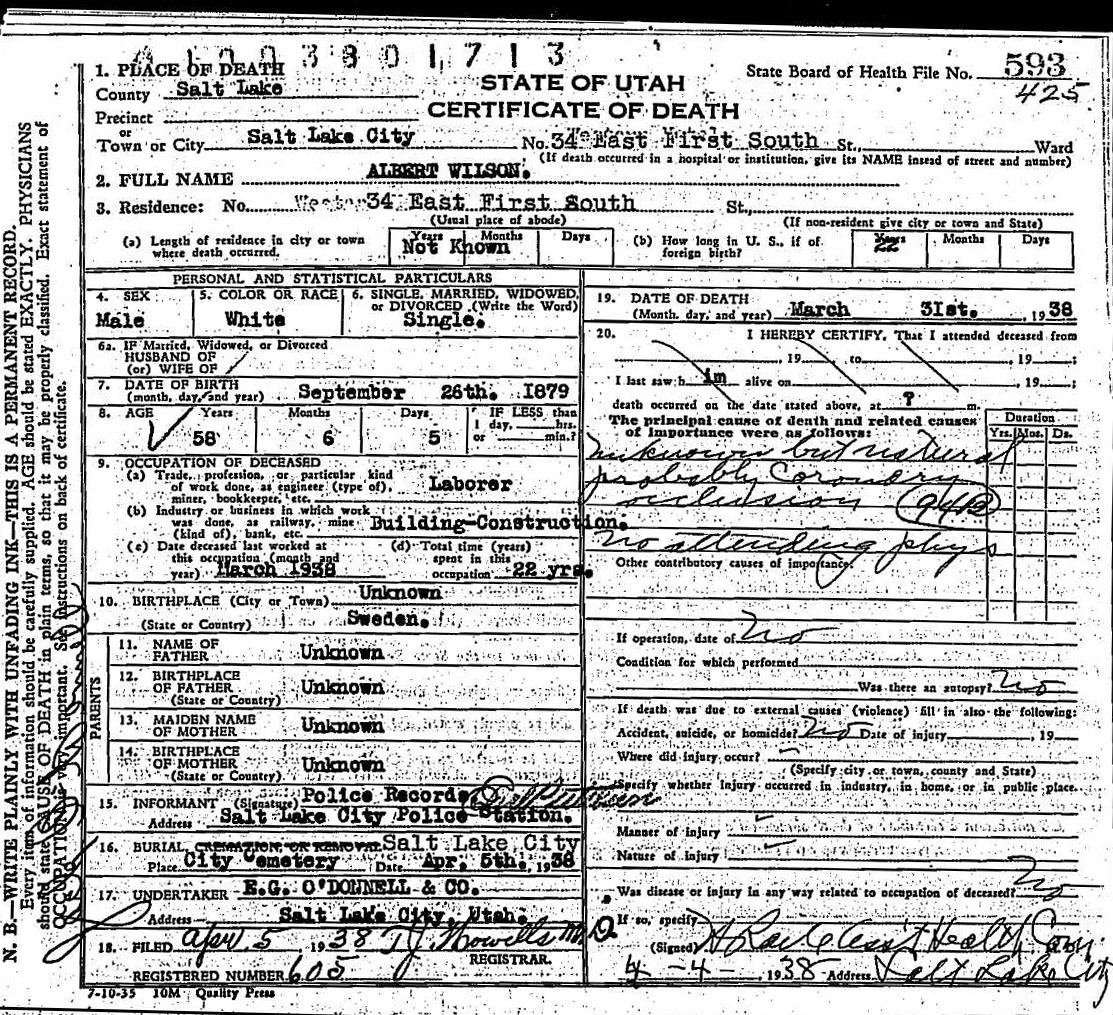 3801713
1. PLACE OF DEATH
County Salt Lake
Precinct
or
Town or City Salt Lake City
STATE OF UTAH
CERTIFICATE OF DEATH
State Board of Health File No. 593
425
No. 34 East First South St., Ward
(If death occurred in a hospital or institution, give its NAME instead of street and number)
2. FULL NAME ALBERT WILSON.
3. Residence: No. 34 East First South St.,
(Usual place of abode) (If non-resident give city or town and State)
(a) Length of residence in city or town where death occurred. Years Months Days
Not Known
(b) How long in U. S., if of foreign birth? Years Months Days
PERSONAL AND STATISTICAL PARTICULARS
4. SEX 5. COLOR OR RACE 6. SINGLE, MARRIED, WIDOWED, or DIVORCED (Write the Word)
Male White Single.
6a. IF Married, Widowed, or Divorced
HUSBAND OF
(or) WIFE OF
7. DATE OF BIRTH
(month, day, and year) September 26th. 1879
8. AGE Years Months Days IF LESS than
1 day, hrs.
or min.?
58 6 5
9. OCCUPATION OF DECEASED
(a) Trade, profession, or particular kind
of work done, as engineer (type of),
miner, bookkeeper, etc. Laborer
(b) Industry or business in which work
was done, as railway, mine
(kind of), bank, etc. Building-Construction.
(c) Date deceased last worked at
this occupation (month and
year) March 1938
(d) Total time (years)
spent in this
occupation 22 yrs.
10. BIRTHPLACE (City or Town) Unknown
(State or Country) Sweden.
PARENTS
11. NAME OF
FATHER Unknown
12. BIRTHPLACE
OF FATHER Unknown
(State or Country)
13. MAIDEN NAME
OF MOTHER Unknown
14. BIRTHPLACE
OF MOTHER Unknown
(State or Country)
15. INFORMANT (Signature) Police Records
Address Salt Lake City Police Station.
16. BURIAL, CREMATION, OR REMOVAL Salt Lake City
Place City Cemetery Date Apr. 5th. 1938
17. UNDERTAKER E.G. O'DONNELL & CO.
Address Salt Lake City, Utah.
18. FILED Apr 5 1938 T J Howells M.D.
REGISTRAR.
REGISTERED NUMBER 605
7-10-35 10M Quality Press
19. DATE OF DEATH
(Month, day, and year) March 31st. , 1938
20. I HEREBY CERTIFY, That I attended deceased from
, 19 to , 19 ;
I last saw him alive on , 19 ;
death occurred on the date stated above, at ? m.
The principal cause of death and related causes
of importance were as follows:
Duration
Yrs. Mos. Ds.
unknown but natural
probably Coronary
occlusion
No attending phys
Other contributory causes of importance:
If operation, date of No
Condition for which performed
Was there an autopsy? No
If death was due to external causes (violence) fill in also the following:
Accident, suicide, or homicide? No Date of injury , 19
Where did injury occur?
(Specify city or town, county and State)
Specify whether injury occurred in industry, in home, or in public place.
Manner of injury
Nature of injury
Was disease or injury in any way related to occupation of deceased? No
If so, specify
(Signed) Ass't Health Com
4-4- 1938 Address Salt Lake City
N. B.—WRITE PLAINLY WITH UNFADING INK—THIS IS A PERMANENT RECORD.
Every item of information should be carefully supplied. AGE should be stated EXACTLY. PHYSICIANS
should state CAUSE OF DEATH in plain terms, so that it may be properly classified. Exact statement of
OCCUPATION is very important. See instructions on back of certificate.